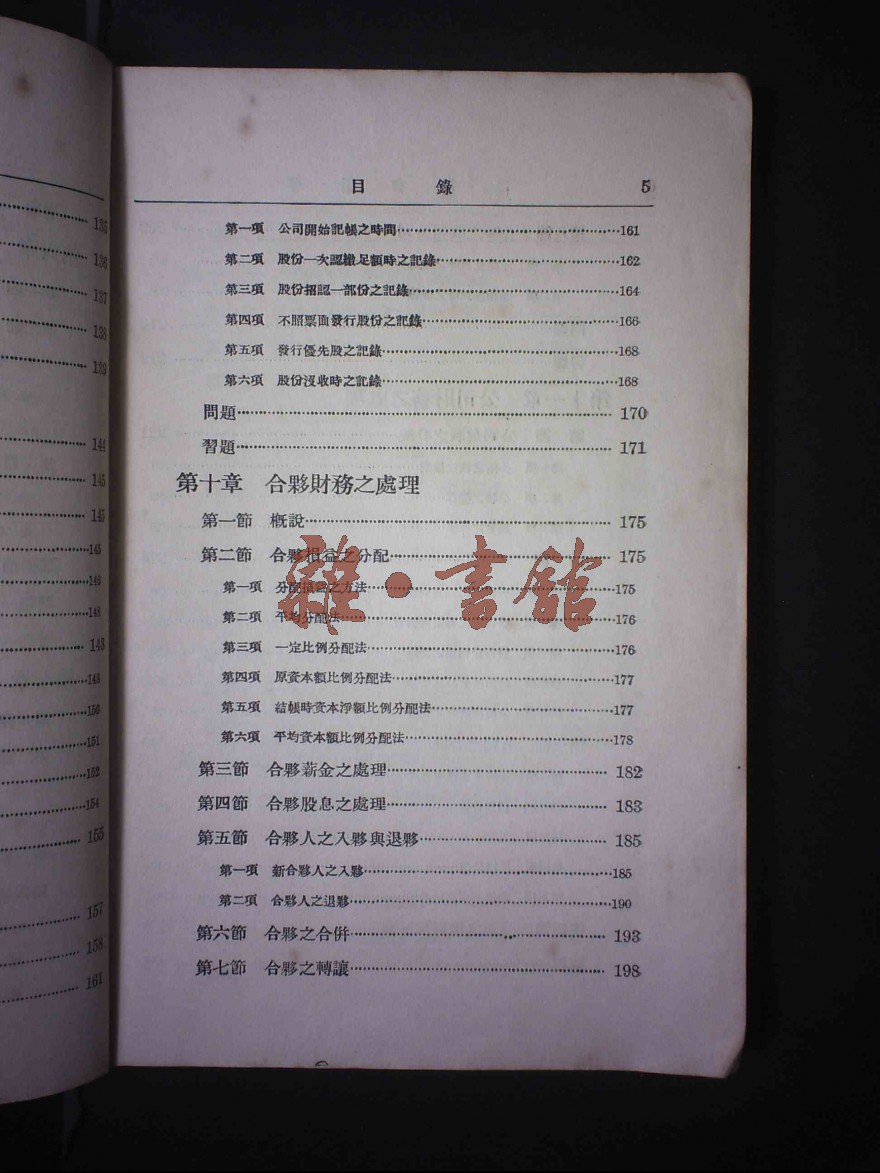 135
136
137
138
139
144
145
145
145
146
148
148
148
150
151
152
154
155
157
158
161
目錄 5
第一項 公司開始記帳之時間……161
第二項 股份一次認繳足額時之記錄……162
第三項 股份招認一部份之記錄……164
第四項 不照票面發行股份之記錄……166
第五項 發行優先股之記錄……168
第六項 股份沒收時之記錄……168
問題……170
習題……171
第十章 合夥財務之處理
第一節 概說……175
第二節 合夥損益之分配……175
第一項 分配損益之方法……175
第二項 平均分配法……176
第三項 一定比例分配法……176
第四項 原資本額比例分配法……177
第五項 結帳時資本淨額比例分配法……177
第六項 平均資本額比例分配法……178
第三節 合夥薪金之處理……182
第四節 合夥股息之處理……183
第五節 合夥人之入夥與退夥……185
第一項 新合夥人之入夥……185
第二項 合夥人之退夥……190
第六節 合夥之合併……193
第七節 合夥之轉讓……198
雜·書館